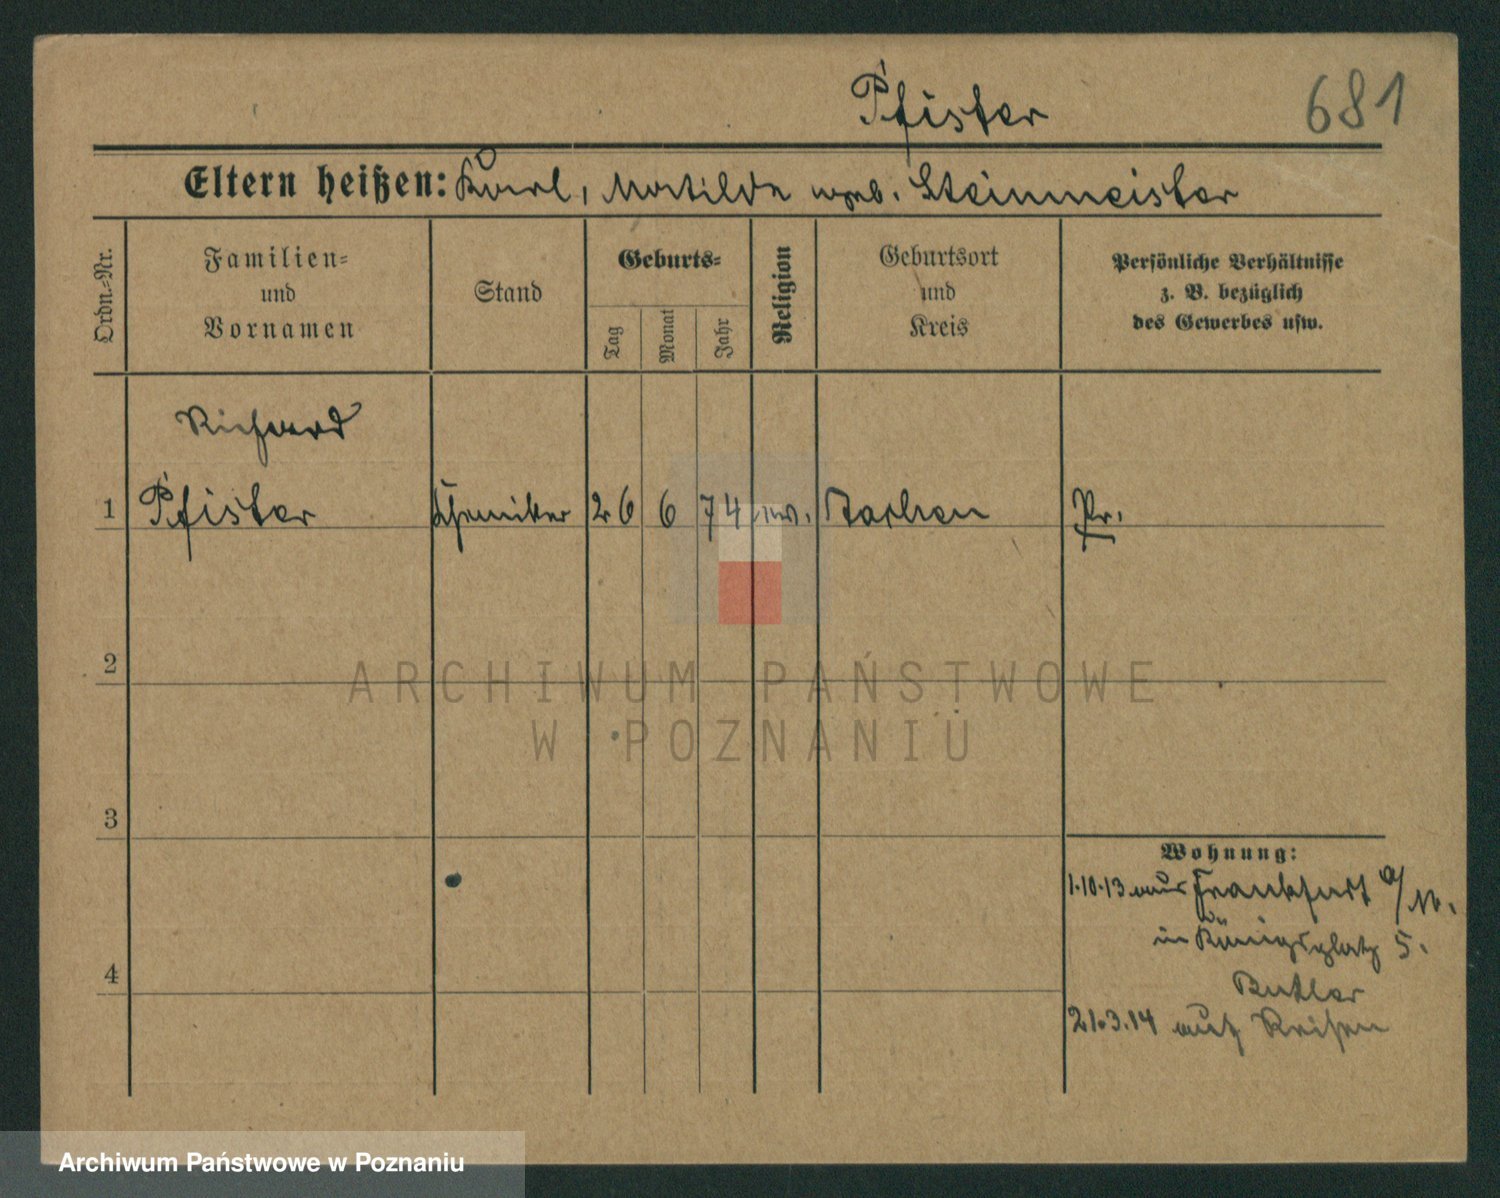 Pfister
681
Eltern heißen: Karl, Matilde geb. Steinmeister
Ordn.-Nr.
Familien-
und
Vornamen
Stand
Geburts-
Tag
Monat
Jahr
Religion
Geburtsort
und
Kreis
Persönliche Verhältnisse
z. B. bezüglich
des Gewerbes usw.
Richard
1 Pfister Chemiker 26 6 74 Pr.
2
3
4
Wohnung:
1.10.13 aus Frankfurt a/M.
in Königsplatz 5.
Butler
21.3.14 auf Reisen
ARCHIWUM PAŃSTWOWE
W POZNANIU
Archiwum Państwowe w Poznaniu